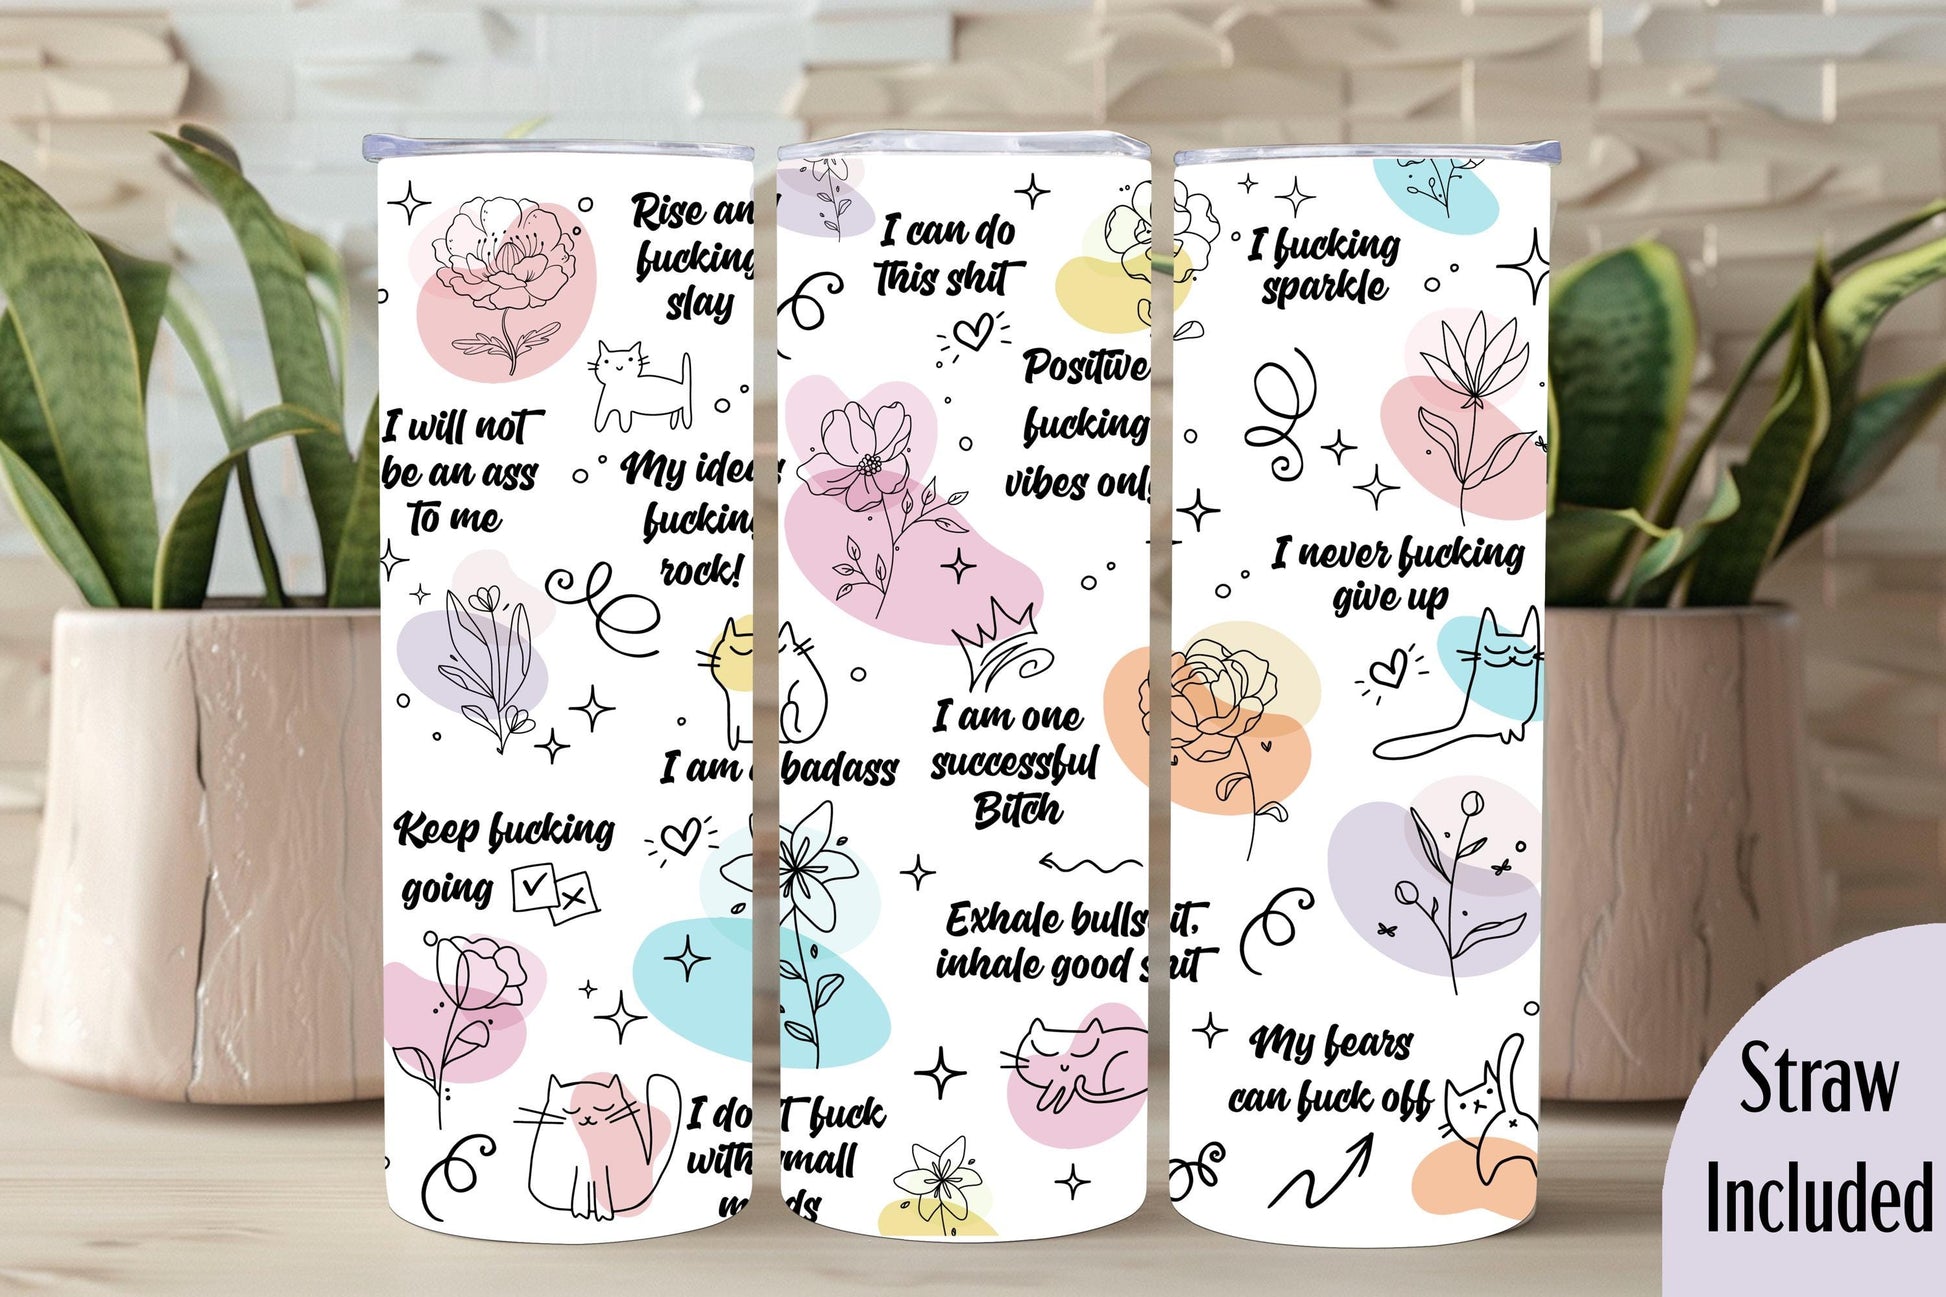 Rise and
fucking
slay
I will not
be an ass
to me
My ideas
fucking
rock!
I am a badass
Keep fucking
going
I don't fuck
with small
minds
I can do
this shit
Positive
fucking
vibes only
I am one
successful
Bitch
Exhale bullshit,
inhale good shit
I fucking
sparkle
I never fucking
give up
My fears
can fuck off
Straw
Included